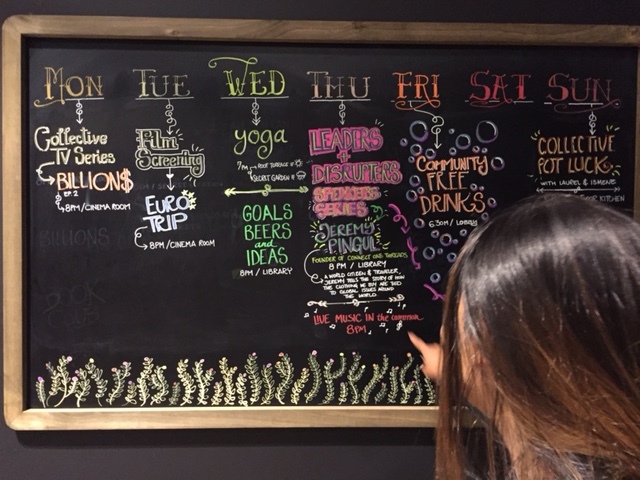 MON
Collective
TV Series
BILLION$
EP. 2
8PM/CINEMA ROOM
BILLIONS
TUE
Film
Screening
EURO
TRIP
8PM/CINEMA ROOM
WED
yoga
7PM ROOF TERRACE IF
SECRET GARDEN IF
GOALS
BEERS
and
IDEAS
8PM / LIBRARY
THU
LEADERS
+
DISRUPTERS
SPEAKERS
SERIES
JEREMY
PINGUL
FOUNDER OF CONNECT ONE THREADS
8 PM / LIBRARY
A WORLD CITIZEN & TRAVELER,
JEREMY TELLS THE STORY OF HOW
THE CLOTHING WE BUY ARE TIED
TO GLOBAL ISSUES AROUND
THE WORLD
LIVE MUSIC IN the
8PM
FRI
COMMUNITY
FREE
DRINKS
6:30PM / LOBBY
SAT
SUN
COLLECTIVE
POT LUCK
WITH LAUREL & ISMENE
KITCHEN